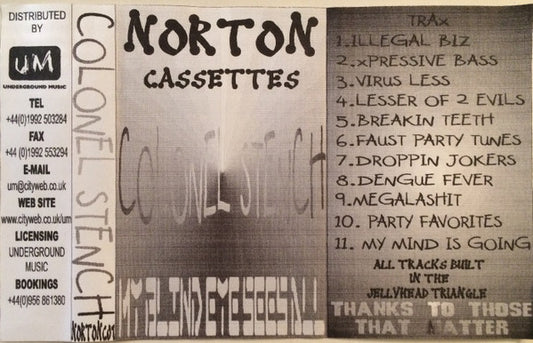 DISTRIBUTED
BY
UM
UNDERGROUND MUSIC
TEL
+44(0)1992 503284
FAX
+44 (0)1992 553294
E-MAIL
um@cityweb.co.uk
WEB SITE
www.cityweb.co.uk/um
LICENSING
UNDERGROUND
MUSIC
BOOKINGS
+44(0)956 861380
COLONEL STENCH
NORTON
CASSETTES
COLONEL STENCH
MY BLIND EYE SEES ALL
TRAx
1. ILLEGAL BIZ
2. xPRESSIVE BASS
3. VIRUS LESS
4. LESSER OF 2 EVILS
5. BREAKIN TEETH
6. FAUST PARTY TUNES
7. DROPPIN JOKERS
8. DENGUE FEVER
9. MEGALASHIT
10. PARTY FAVORITES
11. MY MIND IS GOING
ALL TRACKS BUILT
IN THE
JELLYHEAD TRIANGLE
THANKS TO THOSE
THAT MATTER